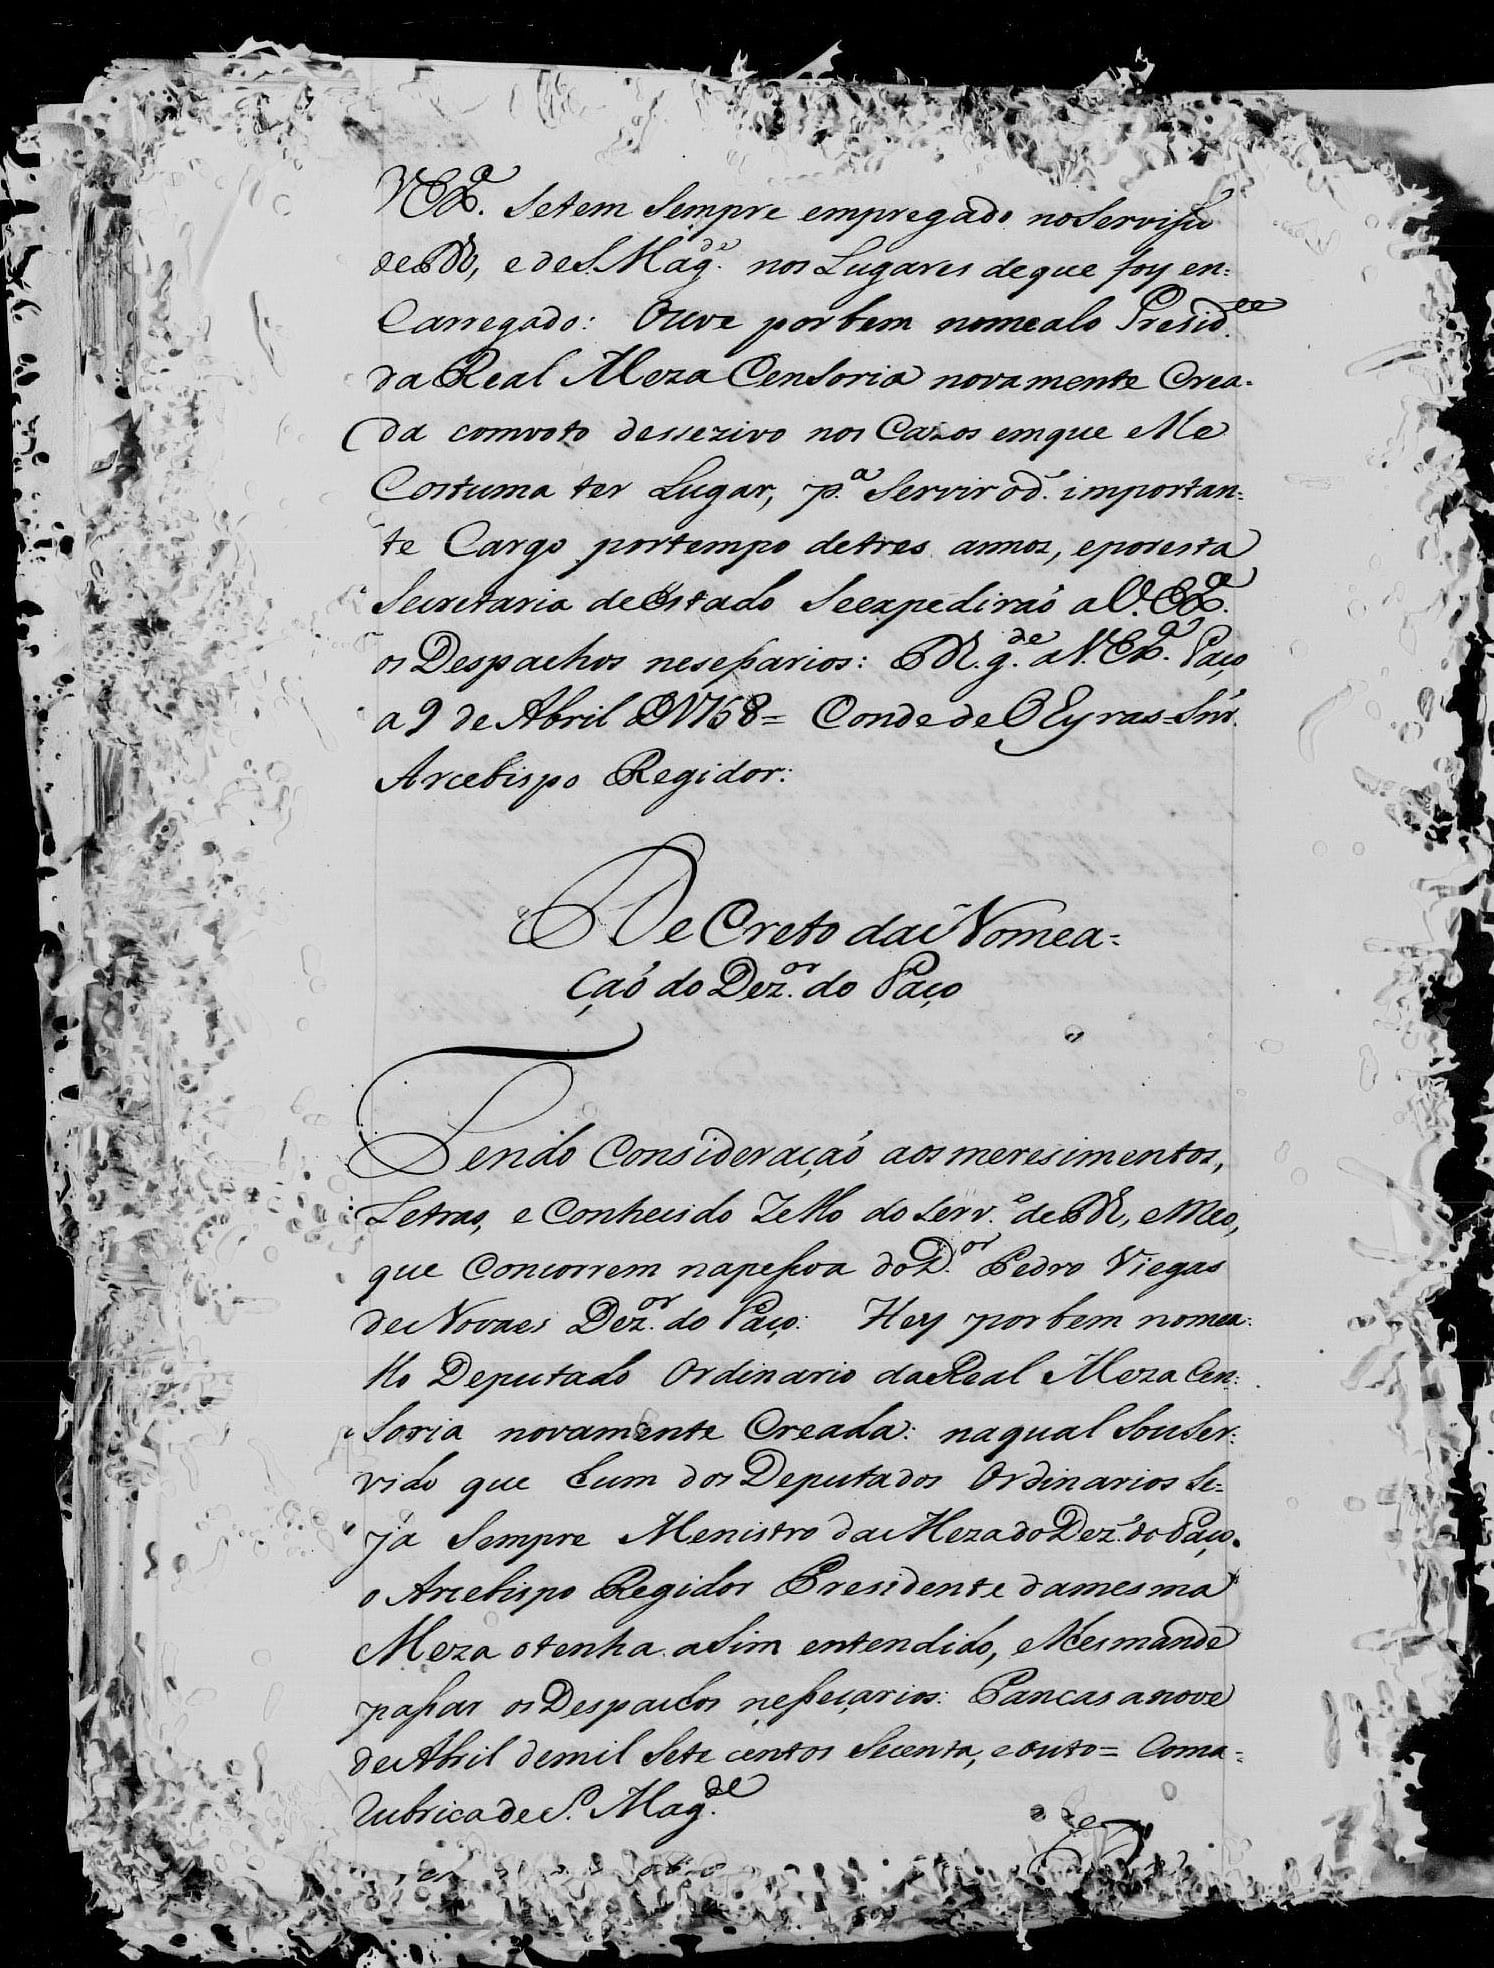 V Ex.ª Setem Sempre empregado noServiſso
deDs, e deS. Mag.de nos Lugares deque foy en=
Carregado: Ouve porbem nomealo Presid.ee
da Real Meza Censoria novamente Crea=
da comvoto dessezivo nos Cazos emque elle
Costuma ter Lugar, p.ª Servir od.º importan=
te Cargo portempo detres annos, eporesta
Secretaria deEstado Seexpediráó aV. Ex.ª
os Despachos neseſsarios: Ds. g.de aV. Ex.ª Paço
a 9 de Abril de 1768= Conde de OEyras=Snr.
Arcebispo Regidor:
DeCreto daNomea=
çaó do Dez.or do Paço
Tendo Consideraçaó aos meresimentos,
Letras, e Conhecido Zello do Serv.º deDs, eMeo,
que Concorrem napeſsoa doD.or Pedro Viegas
deNovaes Dez.or do Paço: Hey porbem nomea=
llo Deputado Ordinario daReal Meza Cen=
Soria novamente Creada: naqual SouSer=
vido que hum dos Deputados Ordinarios Se=
ja Sempre Menistro daMeza do Dez.º do Paço.
o Arcebispo Regidor Presidente damesma
Meza otenha aSim entendido, elhesmande
paſsar os Despachos neſseçarios: Pancas anove
deAbril demil Sete centos Secenta, eouto= Coma=
Rubrica de S. Mag.de